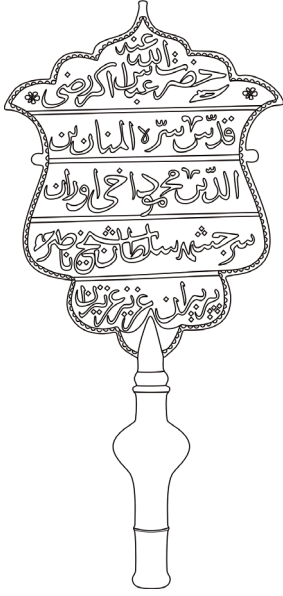 حضرت عباس اكبر رضى الله عنه
قدّس سرّه المنان بن
الدين محمود اخى اوران
سرجشمه سلطان شيخ ناصر
پير پيران عزيز عزيزان